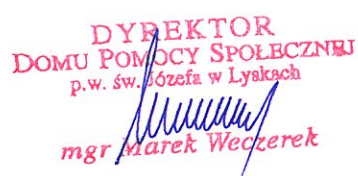 DYREKTOR
DOMU POMOCY SPOŁECZNEJ
p.w. św. Józefa w Lyskach
mgr Marek Weczerek